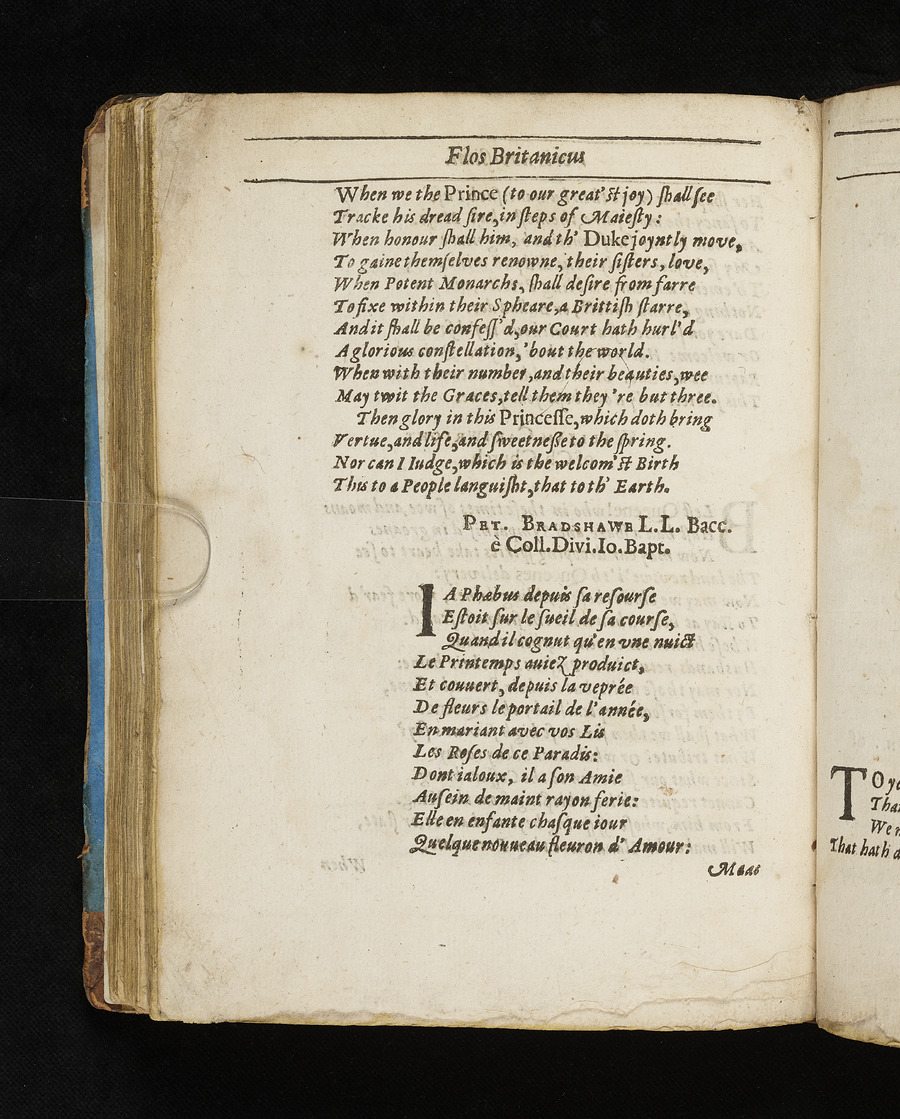 Flos Britanicus
When we the Prince (to our great'ſt joy) ſhall ſee
Tracke his dread ſire, in ſteps of Maieſty:
When honour ſhall him, and th' Duke joyntly move,
To gaine themſelves renowne, their ſiſters, love,
When Potent Monarchs, ſhall deſire from farre
To fixe within their Spheare, a Brittiſh ſtarre,
And it ſhall be confeſſ'd, our Court hath hurl'd
A glorious conſtellation, 'bout the world.
When with their number, and their beauties, wee
May twit the Graces, tell them they 're but three.
Then glory in this Princeſſe, which doth bring
Vertue, and life, and ſweetneße to the ſpring.
Nor can I Iudge, which is the welcom'ſt Birth
This to a People languiſht, that to th' Earth.
PET. BRADSHAWE L.L. Bacc.
è Coll. Divi. Io. Bapt.
IA Phœbus depuis ſa reſourſe
Eſtoit ſur le ſueil de ſa courſe,
Quand il cognut qu'en vne nuict
Le Printemps auiez produict,
Et couuert, depuis la veprée
De fleurs le portail de l'année,
En mariant avec vos Lis
Les Roſes de ce Paradis:
Dont ialoux, il a ſon Amie
Au ſein de maint rayon ferie:
Elle en enfante chaſque iour
Quelque nouueau fleuron d' Amour:
Mais
TO
Tha
We
That hath